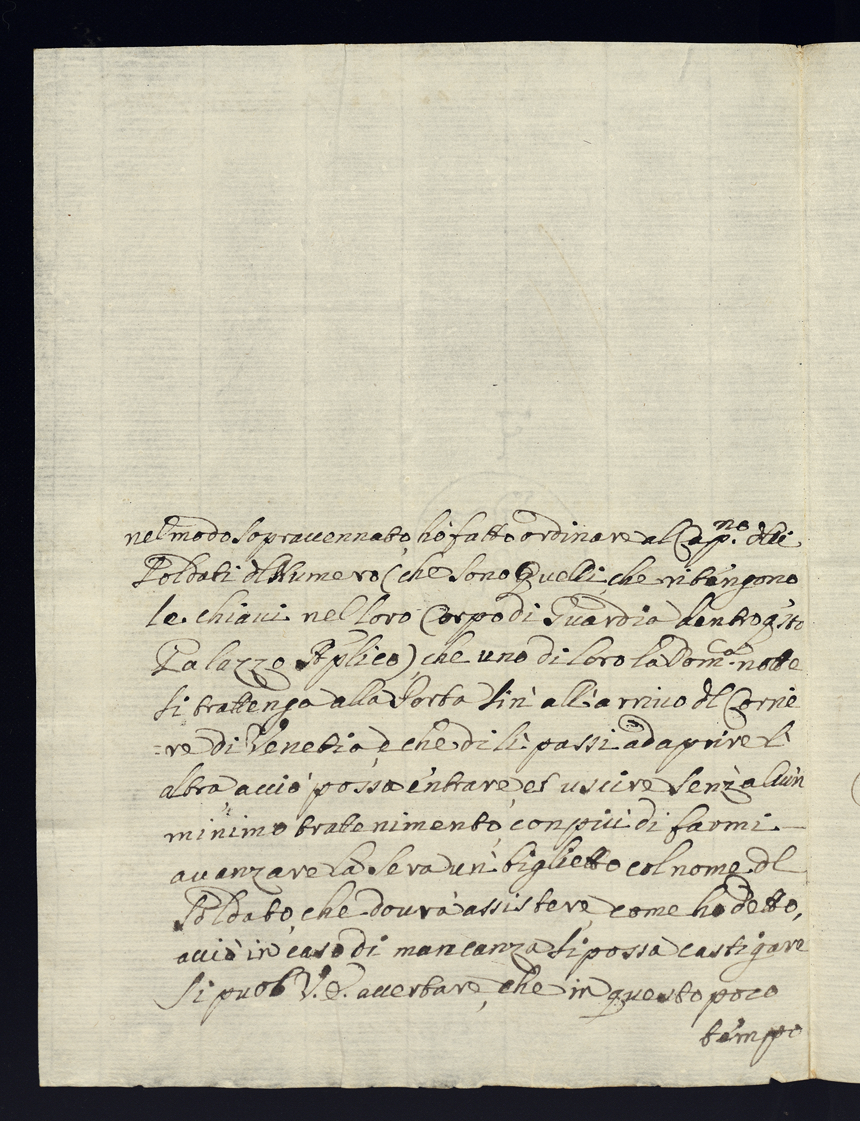 nel modo sopraccennato, hò fatto ordinare al Cap.no dei
Soldati dl Numero (che sono Quelli, che ritengono
le chiaui nel loro Corpo di Guardia dentro q.sto
Palazzo Aplico) che uno di loro la Dom.a notte
si trattenga alla Porta sin' all'arriuo dl Corrie
=re di Venetia, e che di lì passi ad aprire l'
altra acciò possa entrare et uscire senz'alcun
minimo tratenimento, con più di farmi
auanzare la sera un' biglietto col nome dl
Soldato, che dourà assistere, come hò detto,
acciò in caso di mancanza si possa castigare
Si può V.E. accertare, che in questo poco
tempo